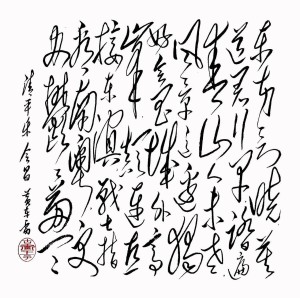 东方欲晓莫
道君行早踏遍
青山人未老
风景这边独
好会昌城外高
峰颠连直
接东溟战士指
看南粤更
加郁郁葱葱
清平乐 会昌